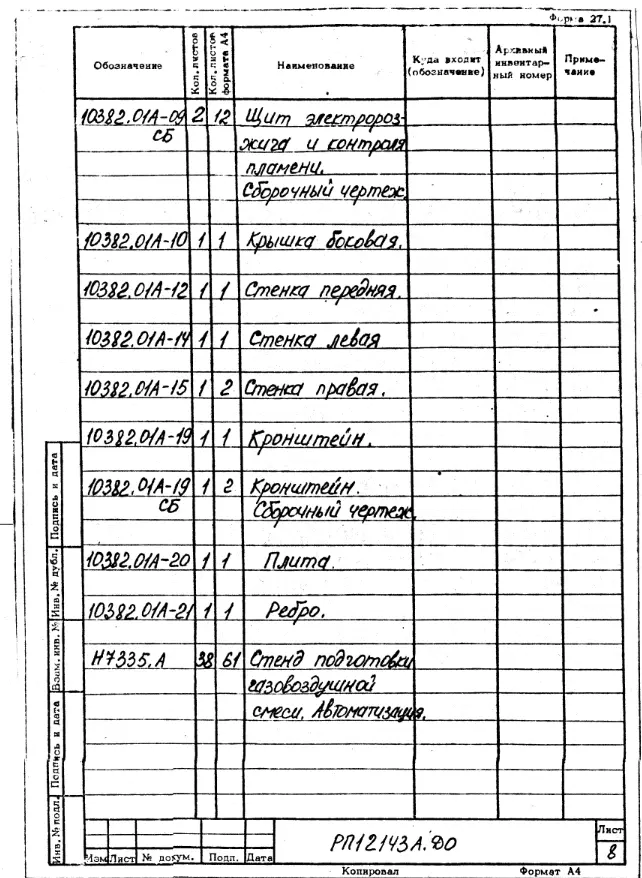 Форма 27.1
Обозначение
Кол. листов
Кол. листов формата А4
Наименование
Куда входит (обозначение)
Архивный инвентарный номер
Примечание
10382.01А-09 2 12 Щит электророз-
СБ жига и контроля
пламени.
Сборочный чертеж.
10382.01А-10 1 1 Крышка боковая.
10382.01А-12 1 1 Стенка передняя.
10382.01А-14 1 1 Стенка левая
10382.01А-15 1 2 Стенка правая.
10382.01А-19 1 1 Кронштейн.
10382.01А-19 1 2 Кронштейн.
СБ Сборочный чертеж.
10382.01А-20 1 1 Плита.
10382.01А-21 1 1 Ребро.
Н7335.А 38 61 Стенд подготовки
газовоздушной
смеси. Автоматизация.
Подпись и дата
Инв. № дубл.
Взам. инв. №
Подпись и дата
Инв. № подл.
РП12143А.ДО
Лист
8
Изм Лист № докум. Подп. Дата
Копировал Формат А4